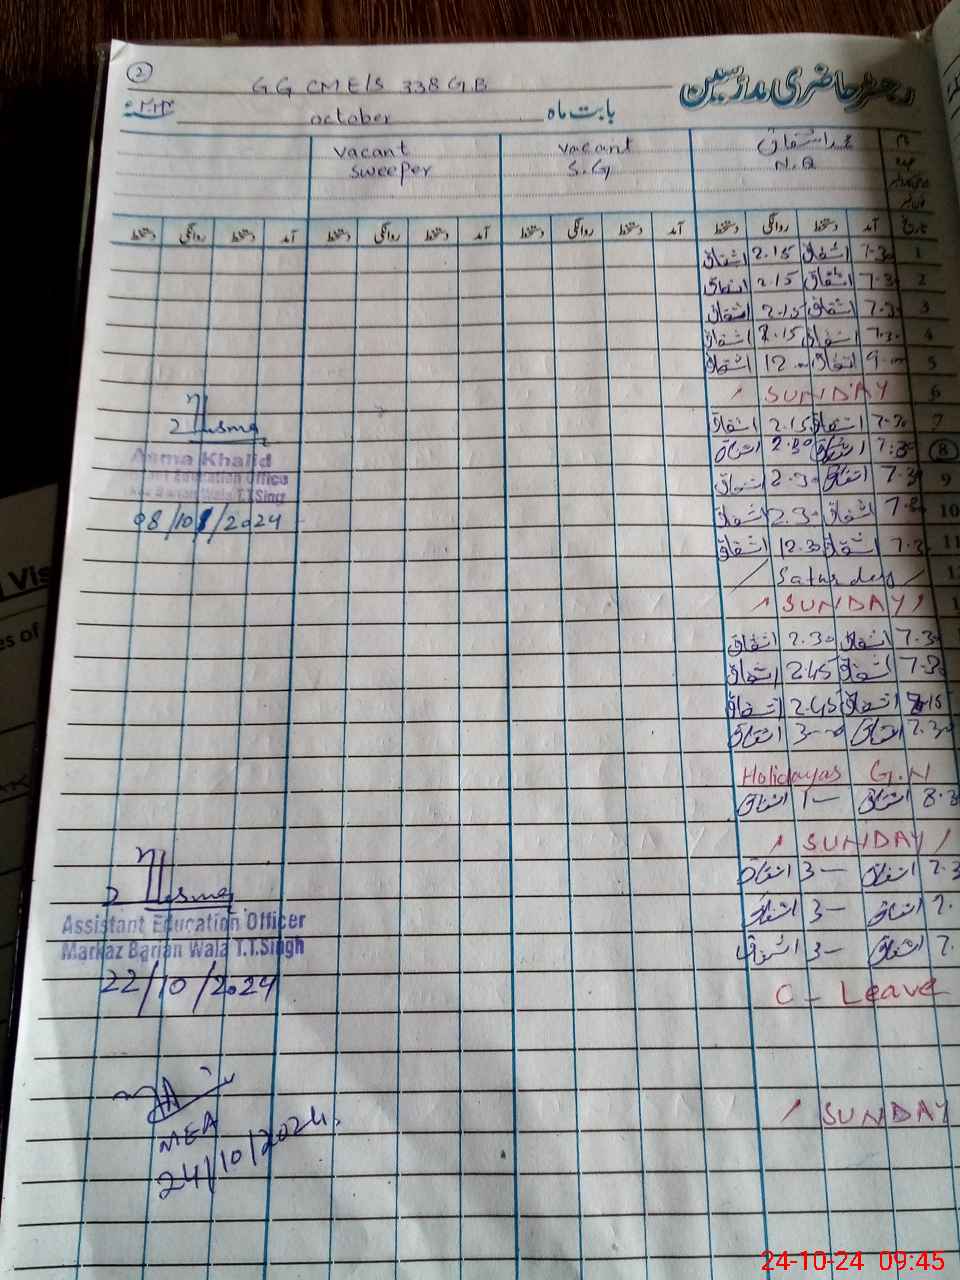 2
GG CME/S 338 G.B
رجسٹر حاضری مدرسین
october
بابت ماہ
vacant
sweeper
vacant
S.G
N.Q
تاریخ آمد دستخط روانگی دستخط آمد دستخط روانگی دستخط آمد دستخط روانگی دستخط آمد دستخط روانگی دستخط
1 7.30 اشفاق 2.15 اشفاق
2 7.3 اشفاق 2.15 اشفاق
3 7.3 اشفاق 2.15 اشفاق
4 7.3 اشفاق 2.15 اشفاق
5 9 اشفاق 12 اشفاق
6 SUNDAY
7 7.30 اشفاق 2.15 اشفاق
8 7.30 اشفاق 2.30 اشفاق
9 7.30 اشفاق 2.30 اشفاق
10 اشفاق 2.30 اشفاق
11 7.3 اشفاق 12.30 اشفاق
Saturday
SUNDAY
7.30 اشفاق 2.30 اشفاق
7.30 اشفاق 2.45 اشفاق
اشفاق 2.45 اشفاق
7.30 اشفاق 3 اشفاق
Holidayas G.N
8.3 اشفاق 1 اشفاق
SUNDAY
7.3 اشفاق 3 اشفاق
7. اشفاق 3 اشفاق
7. اشفاق 3 اشفاق
C - Leave
SUNDAY
Asma Khalid
Education Office
Wala T.T.Sing
08/10/2024
Assistant Education Officer
Markaz Barian Wala T.T.Singh
22/10/2024
MEA
24/10/2024
Vis
es of
24-10-24 09:45